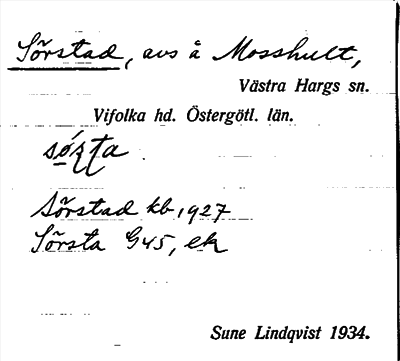 Sörstad, avs å Mosshult,
Västra Hargs sn.
Vifolka hd. Östergötl. län.
Sörstad kb 1927
Sörsta G45, ek
Sune Lindqvist 1934.